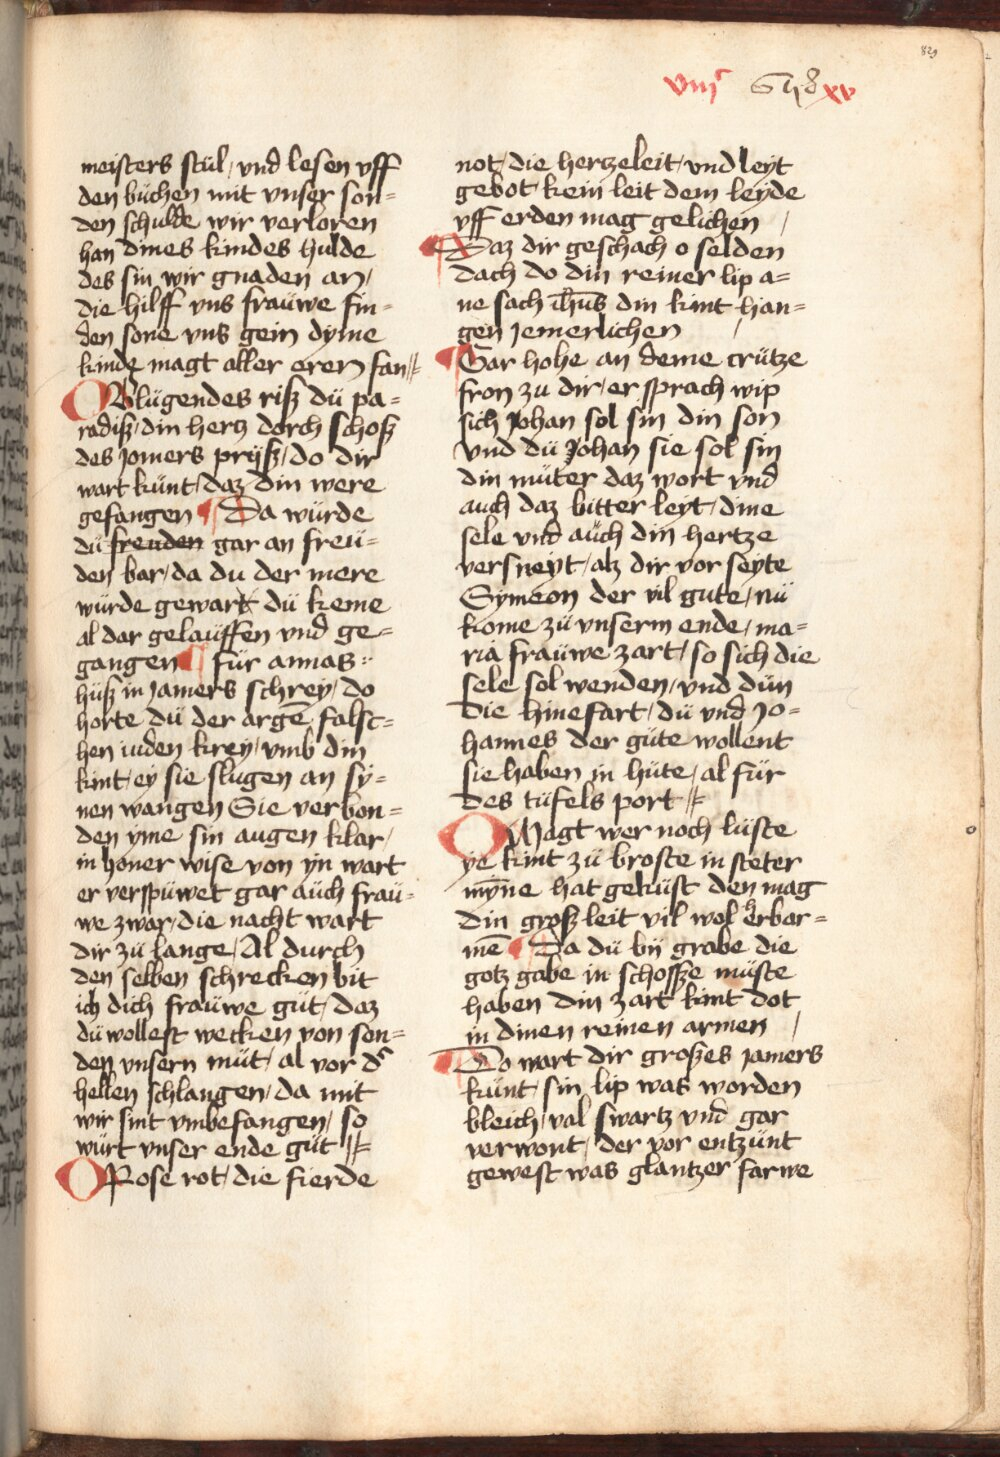 829
viijͨ xv
meisters stül / vnd lesen vff
den büchen mit vnser son-
den schulde wir verloren
han dines kindes hulde
des sin wir gnaden an /
die hilff vns frauwe fin-
den sone vns gein dyme
kinde magt aller eren fan
O Blügendes riß dü pa-
radiß / din hertz dorch schoß
des jomers prijß / do dir
wart künt / daz din were
gefangen ¶ Da würde
dü freuden gar an freü-
den bar / da du der mere
würde gewart dü keme
al dar gelauffen vnd ge-
gangen ¶ für annas
huß in jamers schrey / do
horte dü der argē falsc-
hen iuden krey / vmb din
kint / ey sie slugen an sy-
nen wangen Sie verbon-
den yme sin augen klar /
in honer wise von yn wart
er verspüwet gar aüch fraü-
we zwar / die nacht wart
dir zü lange / Al durch
den selben schrecken bit
ich dich fraüwe güt / daz
dü wollest wecken von son-
den vnsern müt / al vor dˀ
hellen schlangen / da mit
wir sint vmbefangen / so
würt vnser ende güt
O Rose rot / die fierde
not / die hertzeleit / vnd leyt
gebot kein leit dem leyde
vff erden mag gelichen /
¶ Daz dir geschach o selden
dach do din reiner lip a-
ne sach ih̄us din kint han-
gen jemerlichen /
¶ Gar hohe an deme crütze
fron zu dir / er sprach wip
sich Johan sol sin din son
vnd dü Johan sie sol sin
din müter daz wort vnd
auch daz bitter leyt / dine
sele vnd aüch din hertze
versneyt / alz dir vor seyte
Symeon der vil gute / nü
kome zü vnserm ende / ma-
ria fraüwe zart / so sich die
sele sol wenden / vnd dün
die hinefart / dü vnd Jo-
hannes der güte wollent
sie haben in hüte / al für
des tüfels port
O Magt wer noch lüste
ye kint zü broste in steter
myn̄e hat geküst den mag
din groß leit vil wol erbar-
mē ¶ Da dü bij grabe die
gotz gabe in schosße müste
haben din zart kint dot
in dinen reinen armen /
¶ Do wart dir großes jamers
künt / sin lip was worden
bleich / val swartz vnd gar
verwont / der vor entzünt
gewest was glantzer farwe